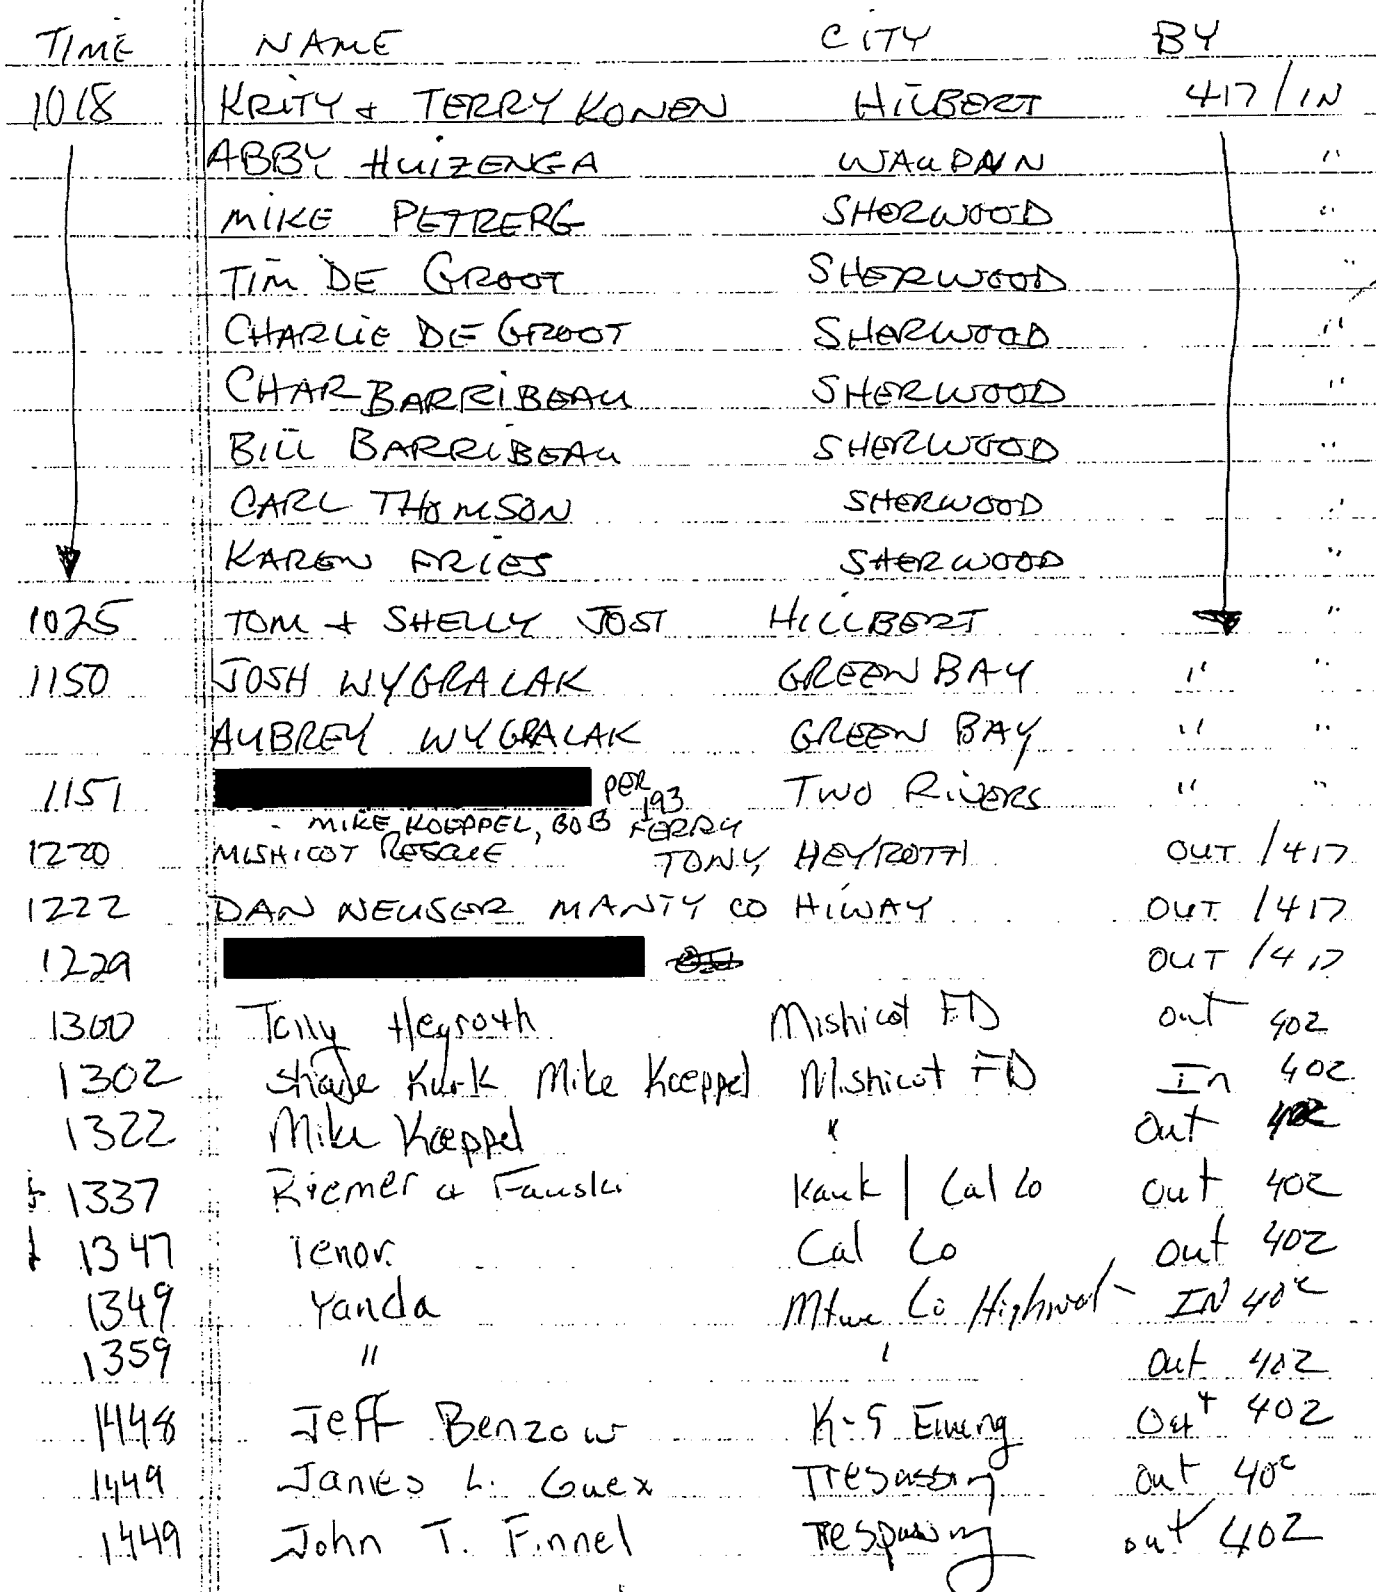 TIME NAME CITY BY
1018 KRITY & TERRY KONEN HILBERT 417/IN
ABBY HUIZENGA WAUPAN "
MIKE PETRERG SHERWOOD "
TIM DE GROOT SHERWOOD "
CHARLIE DE GROOT SHERWOOD "
CHAR BARRIBEAU SHERWOOD "
BILL BARRIBEAU SHERWOOD "
CARL THOMSON SHERWOOD "
KAREN FRIES SHERWOOD "
1025 TOM & SHELLY JOST HILLBERT "
1150 JOSH WYGRALAK GREEN BAY " "
AUBREY WYGRALAK GREEN BAY " "
1151 PER 193 TWO RIVERS " "
MIKE KOEPPEL, BOB FERRY
1220 MISHICOT RESCUE TONY HEYROTH OUT /417
1222 DAN NEUSER MANTY CO HIWAY OUT /417
1229 OUT /417
1300 Tony Heyroth Mishicot FD out 402
1302 Kurk Mike Koeppel Mishicot FD In 402
1322 Mike Koeppel " Out 402
1337 Riemer & Kauk / Cal Co out 402
1347 Tenor. Cal Co out 402
1349 Yanda Mtwc Co Highway IN 402
1359 " " Out 402
1448 Jeff Benzow K-9 Out 402
1449 James L. Guex Trespassing out 402
1449 John T. Finnel Trespassing out 402